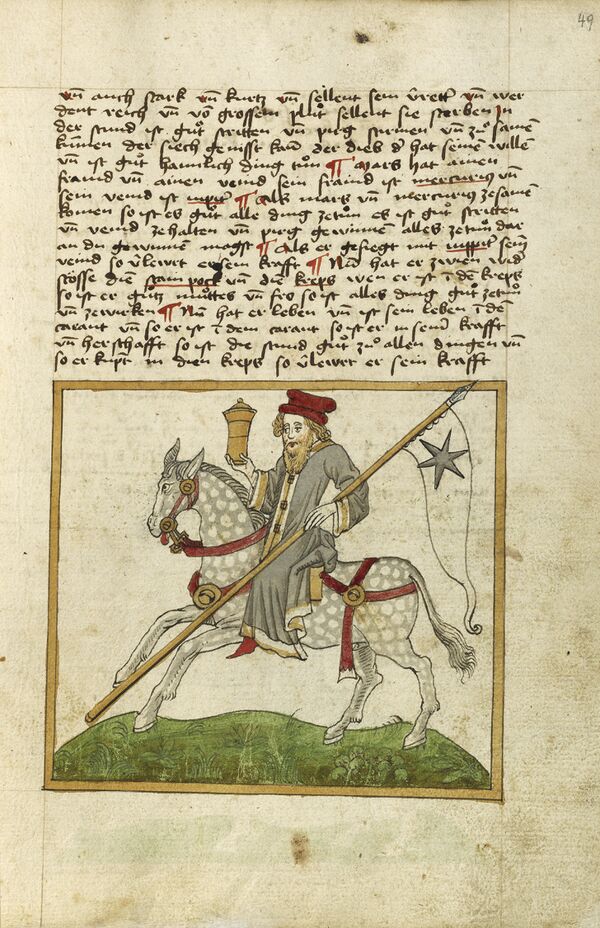 49
vn̄ auch stark vn̄ kurtz vn̄ sellent sein vrett° vn̄ wer
dent reich vn̄ võ grossem plut sellent sie sterben In
der stund ist gůt stritten vn̄ pirg stirmen vn̄ zů samē
kumen der siech genisst kam̄ der dieb d hat seinē willē
vn̄ ist gůt haimlich ding tůn ¶ Mars hat ainen
fraind vn̄ ainen veind sein fraind ist mercurius vn̄
sein veind ist iupit° ¶ Als mars vn̄ mercurius zesamē
komen so ist es gůt alle ding zetůn es ist gůt stritten
vn̄ veind zehalten vn̄ pirg gewinnen alles zetůn dar
an du gewinnen magst ¶ Als er gesiegt mit iuppit° seinē
veind so v̈lewrt er sein krafft ¶ Nun̄ hat er zwien wid
stösse dien stain pock vn̄ die kreps wen er ist ī dē kreps
so ist er gůtz můttes vn̄ fro so ist alles ding gůt zetůn
vn̄ zewirken ¶ Nun̄ hat er leben vn̄ ist sein leben ī dē
carant vn̄ so er ist ī dem carant so ist er in seiner krafft
vn̄ herschafft so ist die stund gůt zů allen dingen vn̄
so er kūpt in dien kreps so v̈lewrt er sein krafft